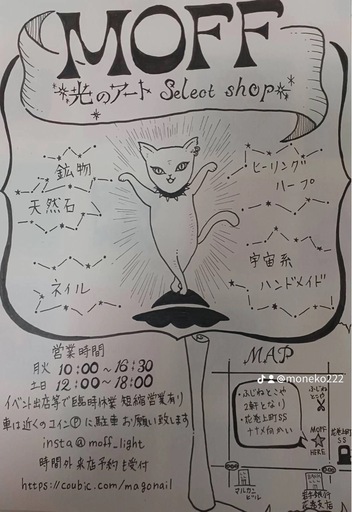 MOFF
光のアート Select shop
鉱物
天然石
ネイル
ヒーリング
ハープ
宇宙系
ハンドメイド
営業時間
月火 10:00〜16:30
土日 12:00〜18:00
イベント出店等で臨時休業 短縮営業有り
車は近くのコインⓅに駐車お願い致します
insta@moff_light
時間外来店予約も受付
https://coubic.com/magonail
MAP
@moneko222
・ふじねとこや
2軒となり
・花巻上町SS
ナナメ向かい
ふじねとこや
MOFF
HERE
花巻上町
SS
マルカンビル
岩手銀行
花巻支店